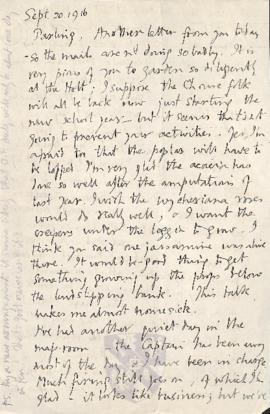 Sept 20. 1916
Darling. Another letter from you today
- so the mails aren't doing so badly. It is
very pious of you to garden so diligently
at the Holt; I suppose the Chowne folk
will all be back now just starting the
new school year - but it seems that isn't
going to prevent your activities. Yes, I'm
afraid too that the poplars will have to
be lopped. I'm very glad the acacia has
done so well after the amputations of
last year. I wish the wychuriana roses
would do really well, & I want the
creepers under the loggia to grow. I
think you said one jassamine was alive
there. It would be a good thing to get
something growing up the props below
the land slipping bank. This talk
makes me almost homesick.
I've had another quiet day in the
map-room - the Captain has been away
most of the day & I have been in charge
Much firing still goes on, of which I'm
glad - it looks like business; but we've